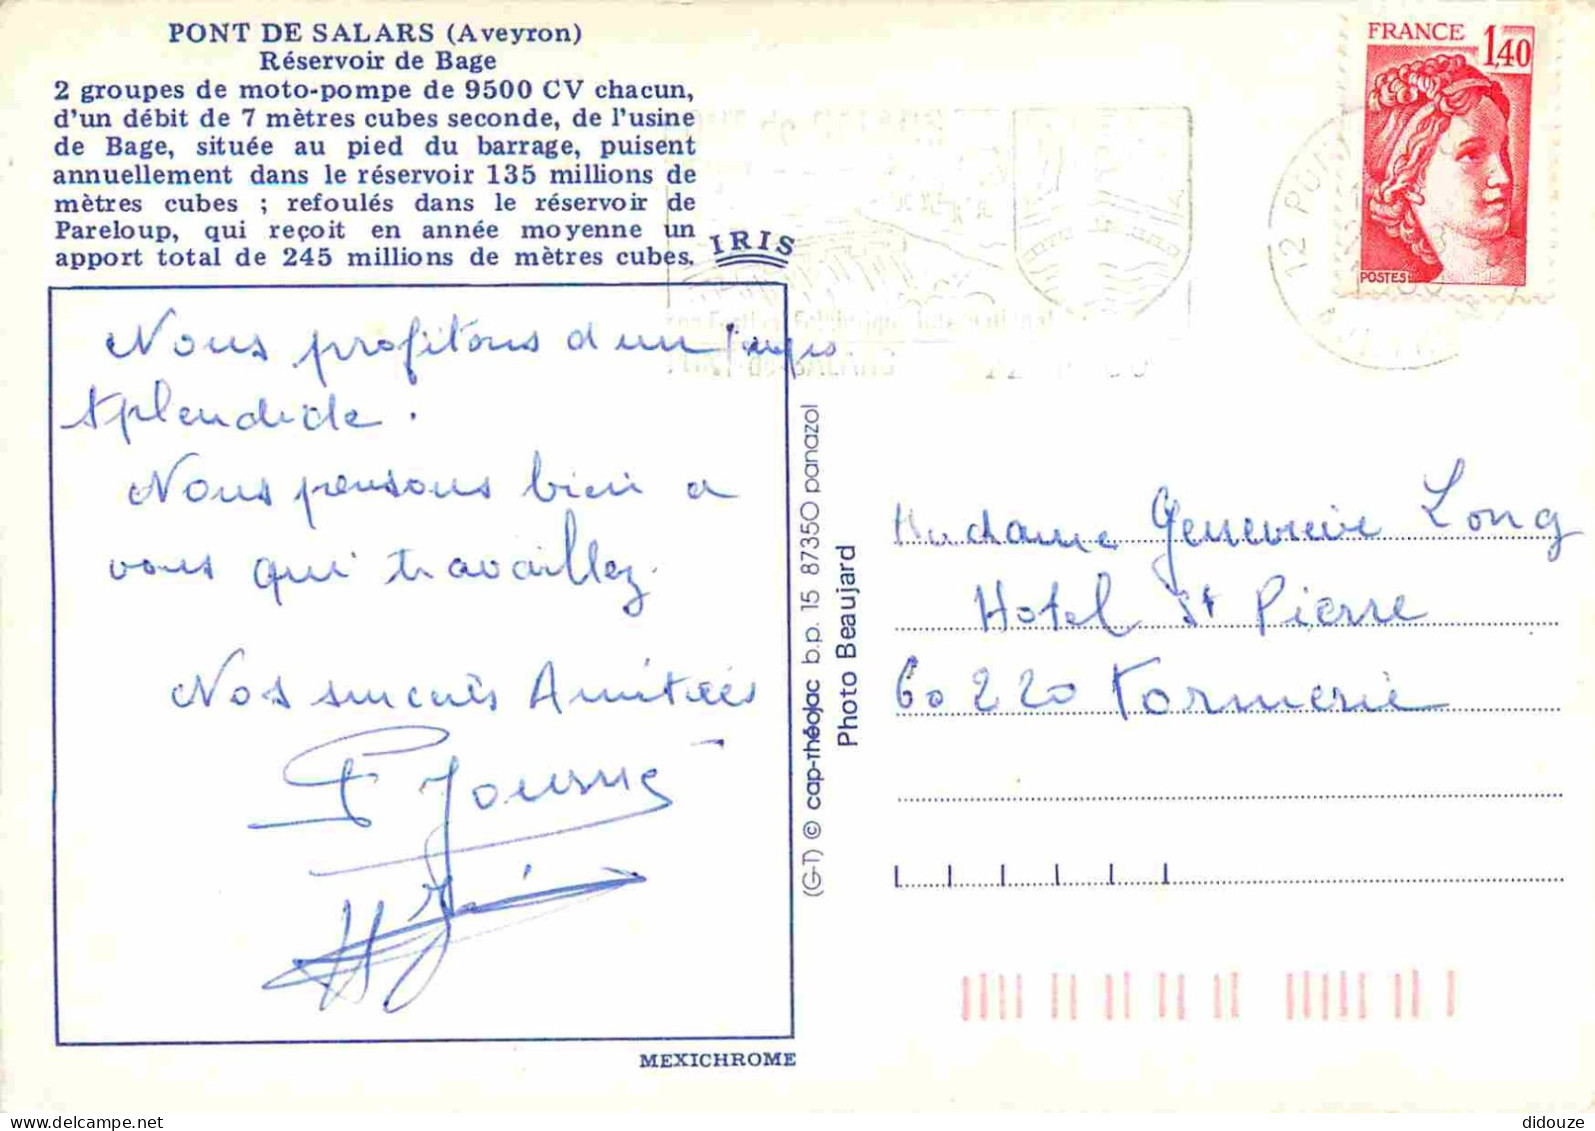 PONT DE SALARS (Aveyron)
Réservoir de Bage
2 groupes de moto-pompe de 9500 CV chacun,
d'un débit de 7 mètres cubes seconde, de l'usine
de Bage, située au pied du barrage, puisent
annuellement dans le réservoir 135 millions de
mètres cubes ; refoulés dans le réservoir de
Pareloup, qui reçoit en année moyenne un
apport total de 245 millions de mètres cubes.
IRIS
FRANCE 1,40
POSTES
12 PONT
Nous profitons d'un temps
splendide.
Nous pensons bien a
vous qui travaillez.
Nos Amitiés
MEXICHROME
(G-T) © cap-théojac b.p. 15 87350 panazol
Photo Beaujard
Madame Genevieve Long
Hotel St Pierre
60220 Formerie
didouze